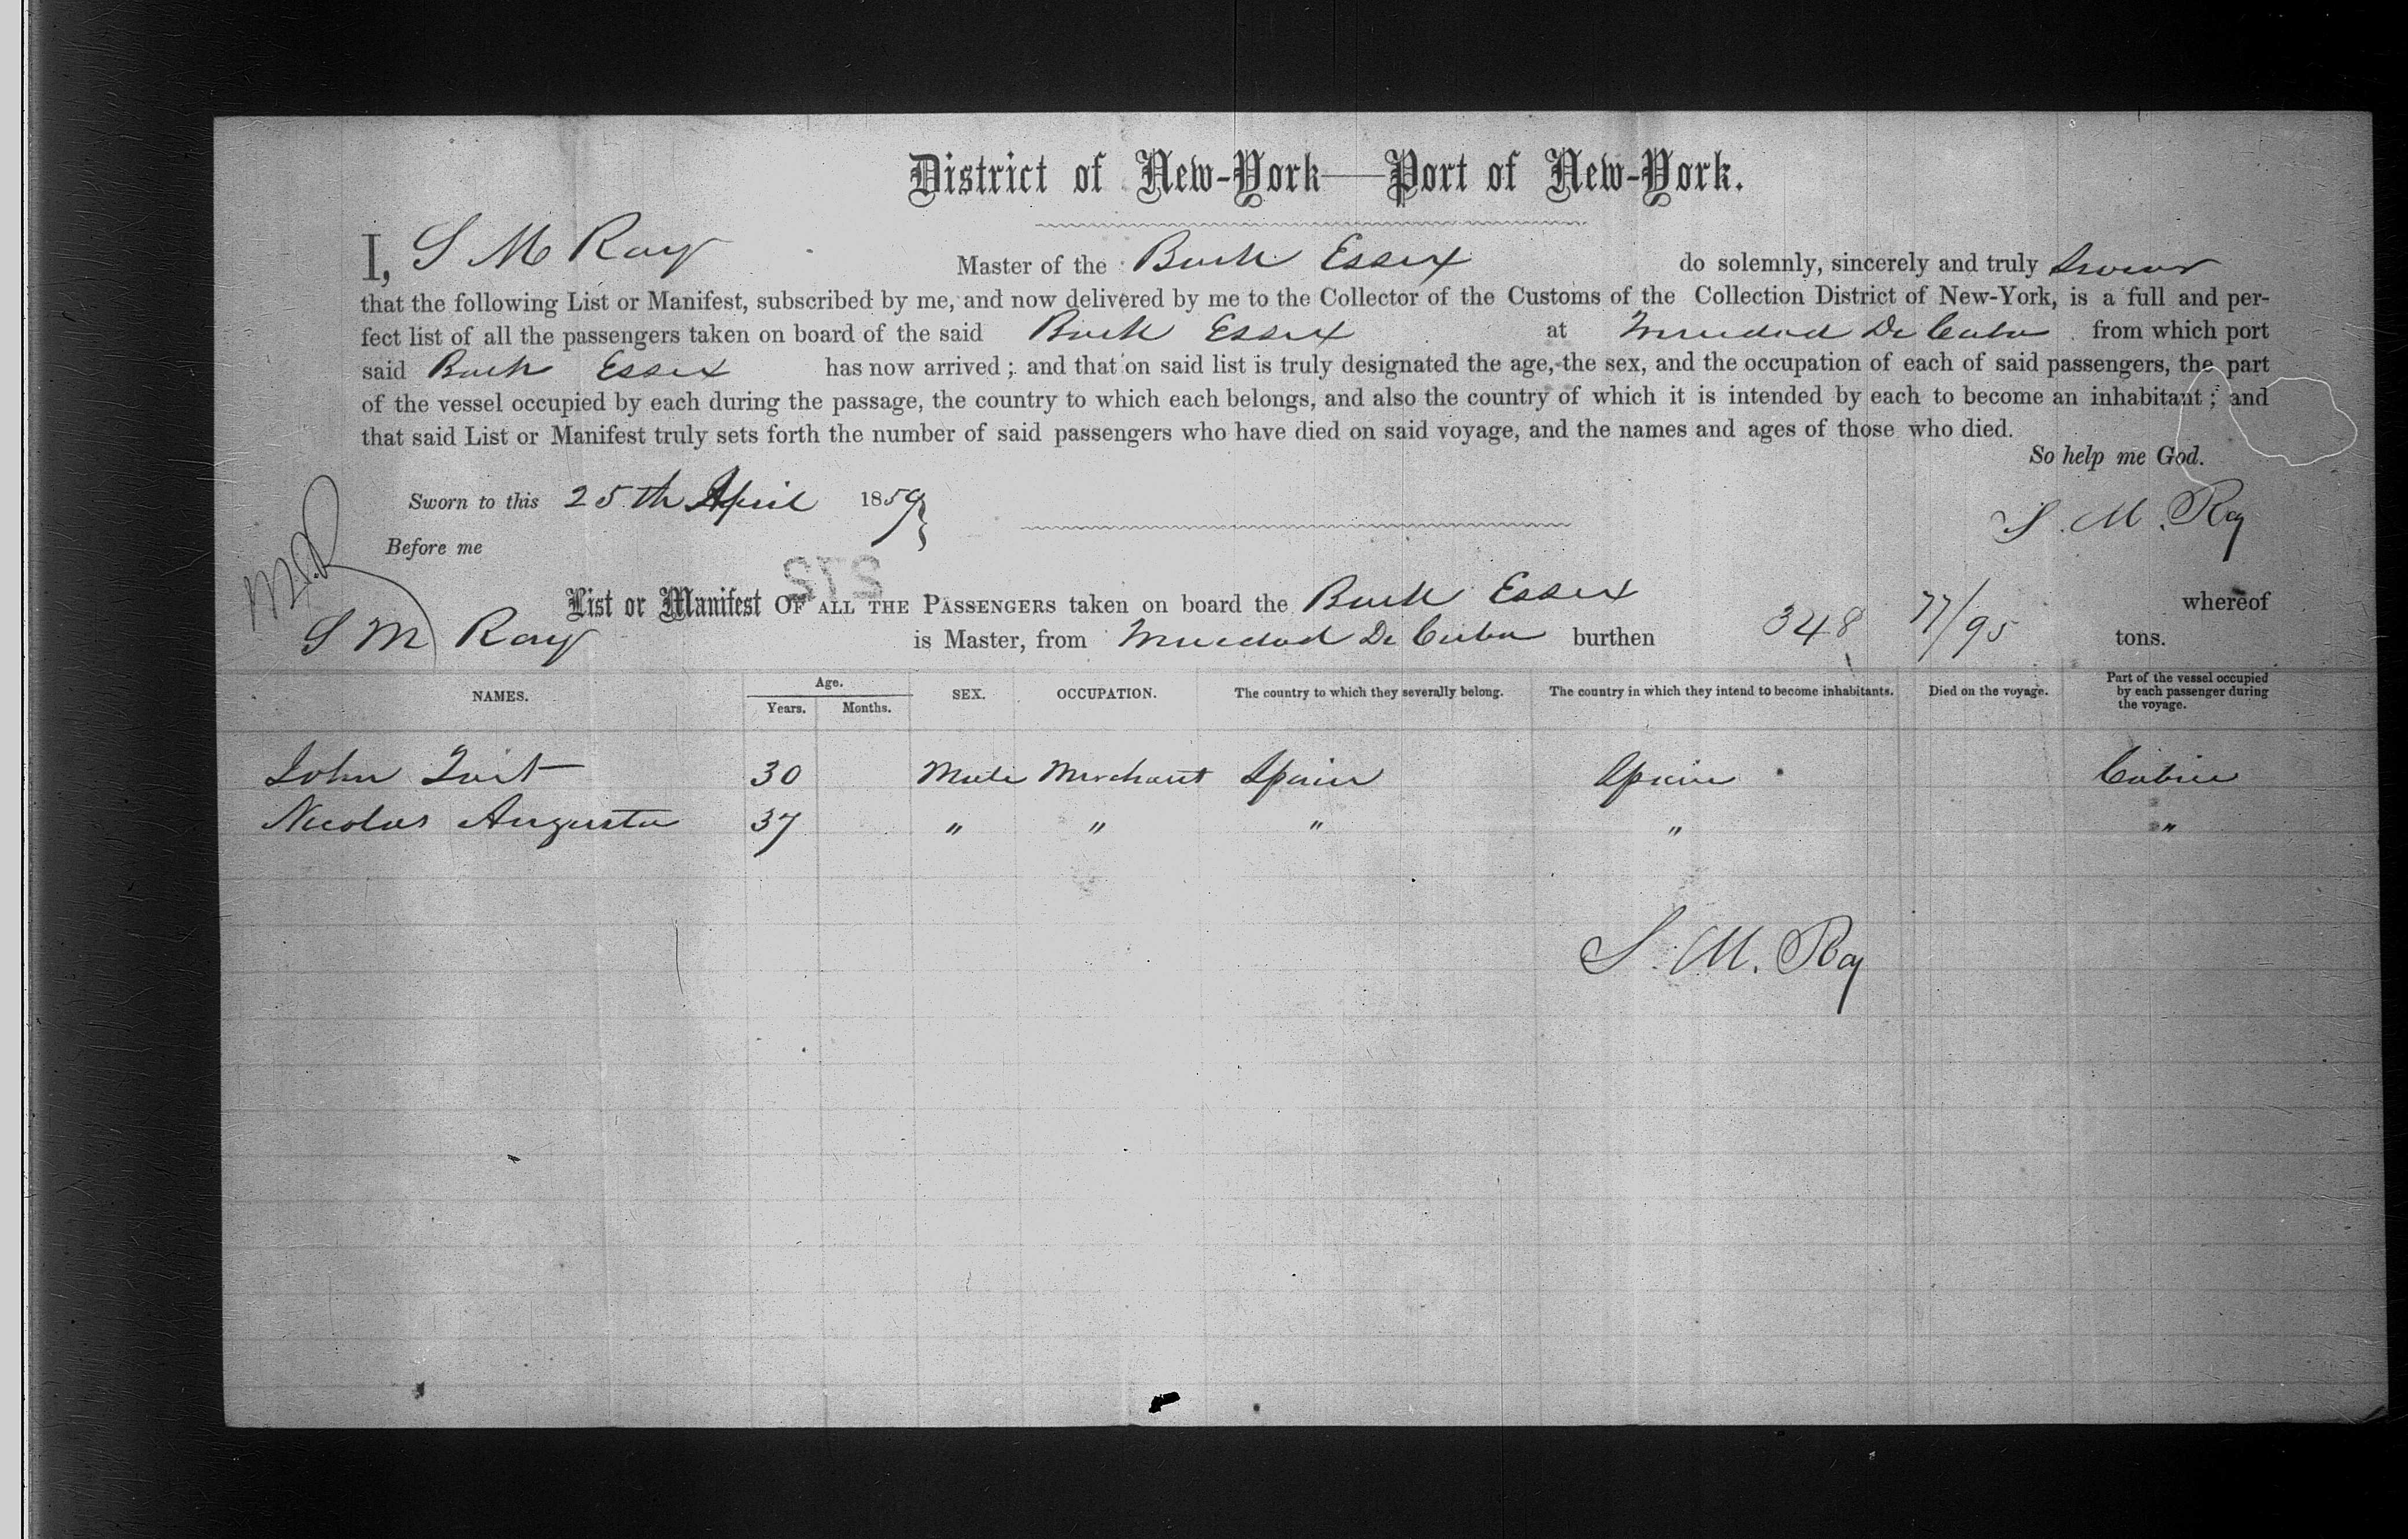 District of New-York—Port of New-York.
I, S M Ray Master of the Bark Essex do solemnly, sincerely and truly swear
that the following List or Manifest, subscribed by me, and now delivered by me to the Collector of the Customs of the Collection District of New-York, is a full and per-
fect list of all the passengers taken on board of the said Bark Essex at Trinidad De Cuba from which port
said Bark Essex has now arrived; and that on said list is truly designated the age, the sex, and the occupation of each of said passengers, the part
of the vessel occupied by each during the passage, the country to which each belongs, and also the country of which it is intended by each to become an inhabitant; and
that said List or Manifest truly sets forth the number of said passengers who have died on said voyage, and the names and ages of those who died.
So help me God.
Sworn to this 25th April 1859 S. M. Ray
Before me
272
List or Manifest OF ALL THE PASSENGERS taken on board the Bark Essex whereof
S M Ray is Master, from Trinidad De Cuba burthen 348 77/95 tons.
NAMES. Age. Years. Months. SEX. OCCUPATION. The country to which they severally belong. The country in which they intend to become inhabitants. Died on the voyage. Part of the vessel occupied by each passenger during the voyage.
John 30 Male Merchant Spain Spain Cabin
Nicolas Augusta 37 " " " " "
S. M. Ray